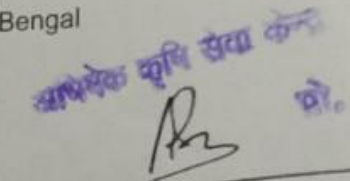 Bengal
अभिषेक कृषि सेवा केन्द्र
प्रो.